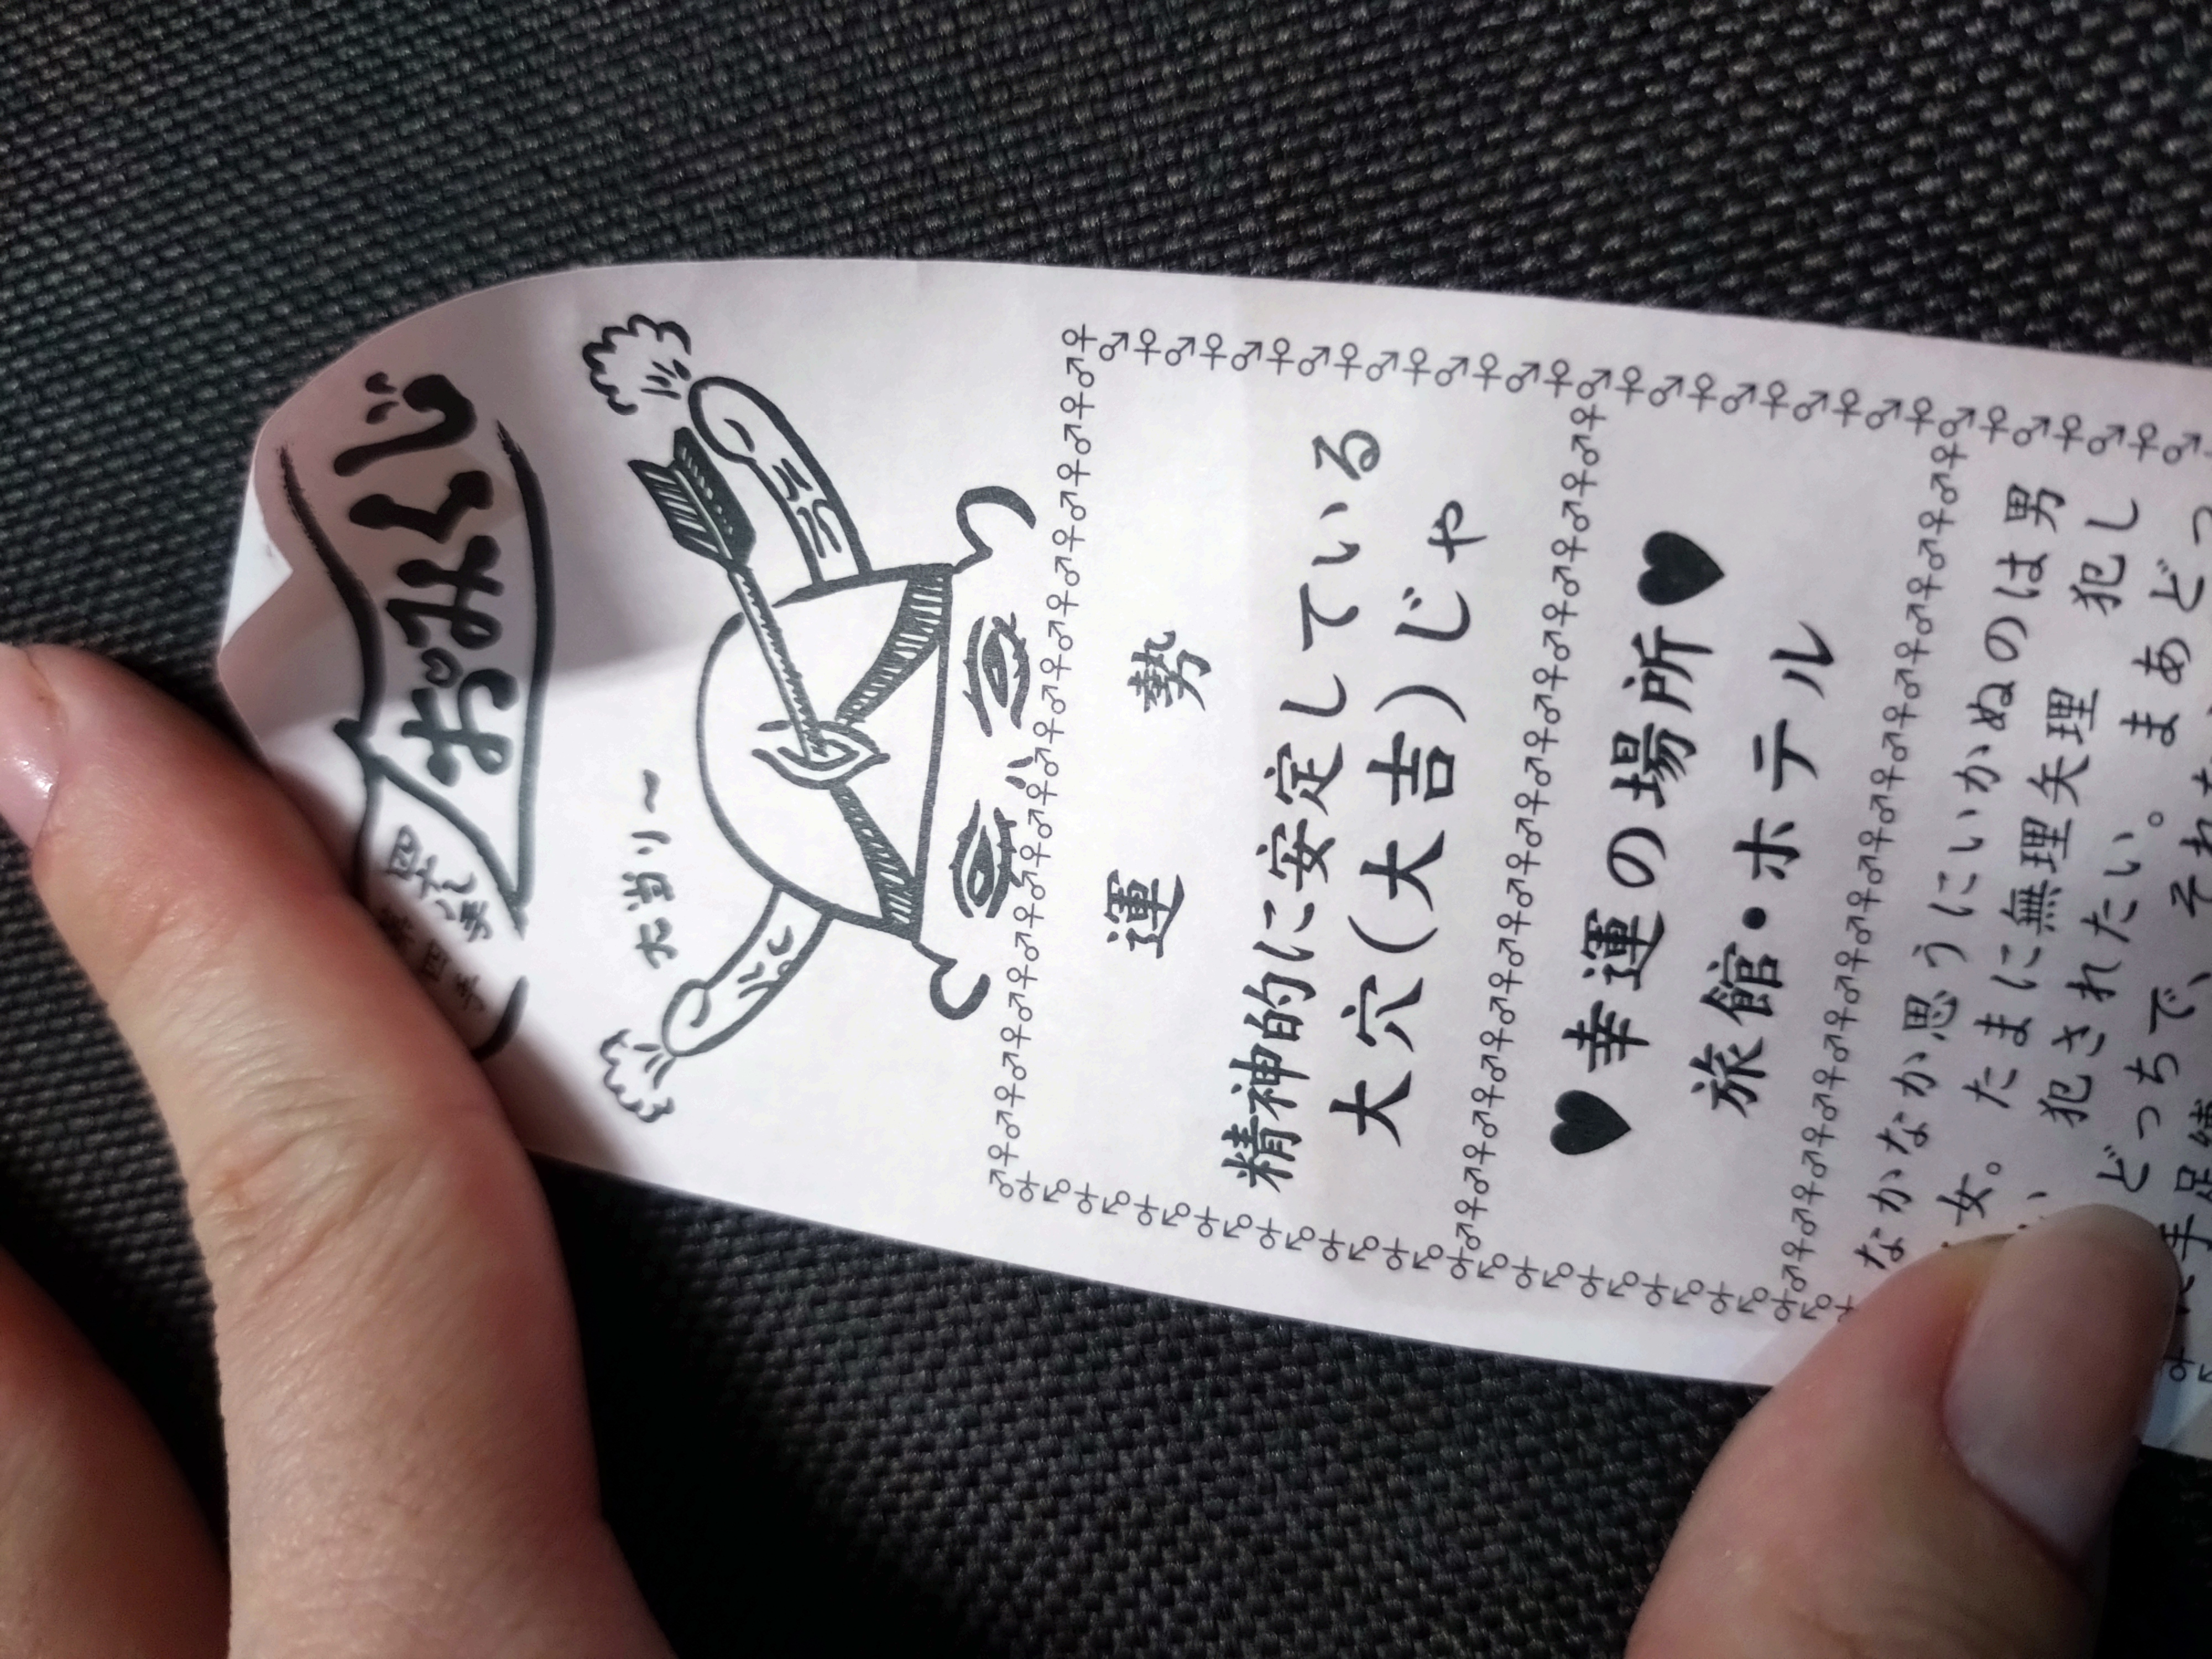 おみくじ
大当リ〜
運勢
精神的に安定している
大穴(大吉)じゃ
♥幸運の場所♥
旅館・ホテル
なかなか思うにいかぬのは男
女。たまに無理矢理
犯されたい。
犯し
どっちで、
まあどっ